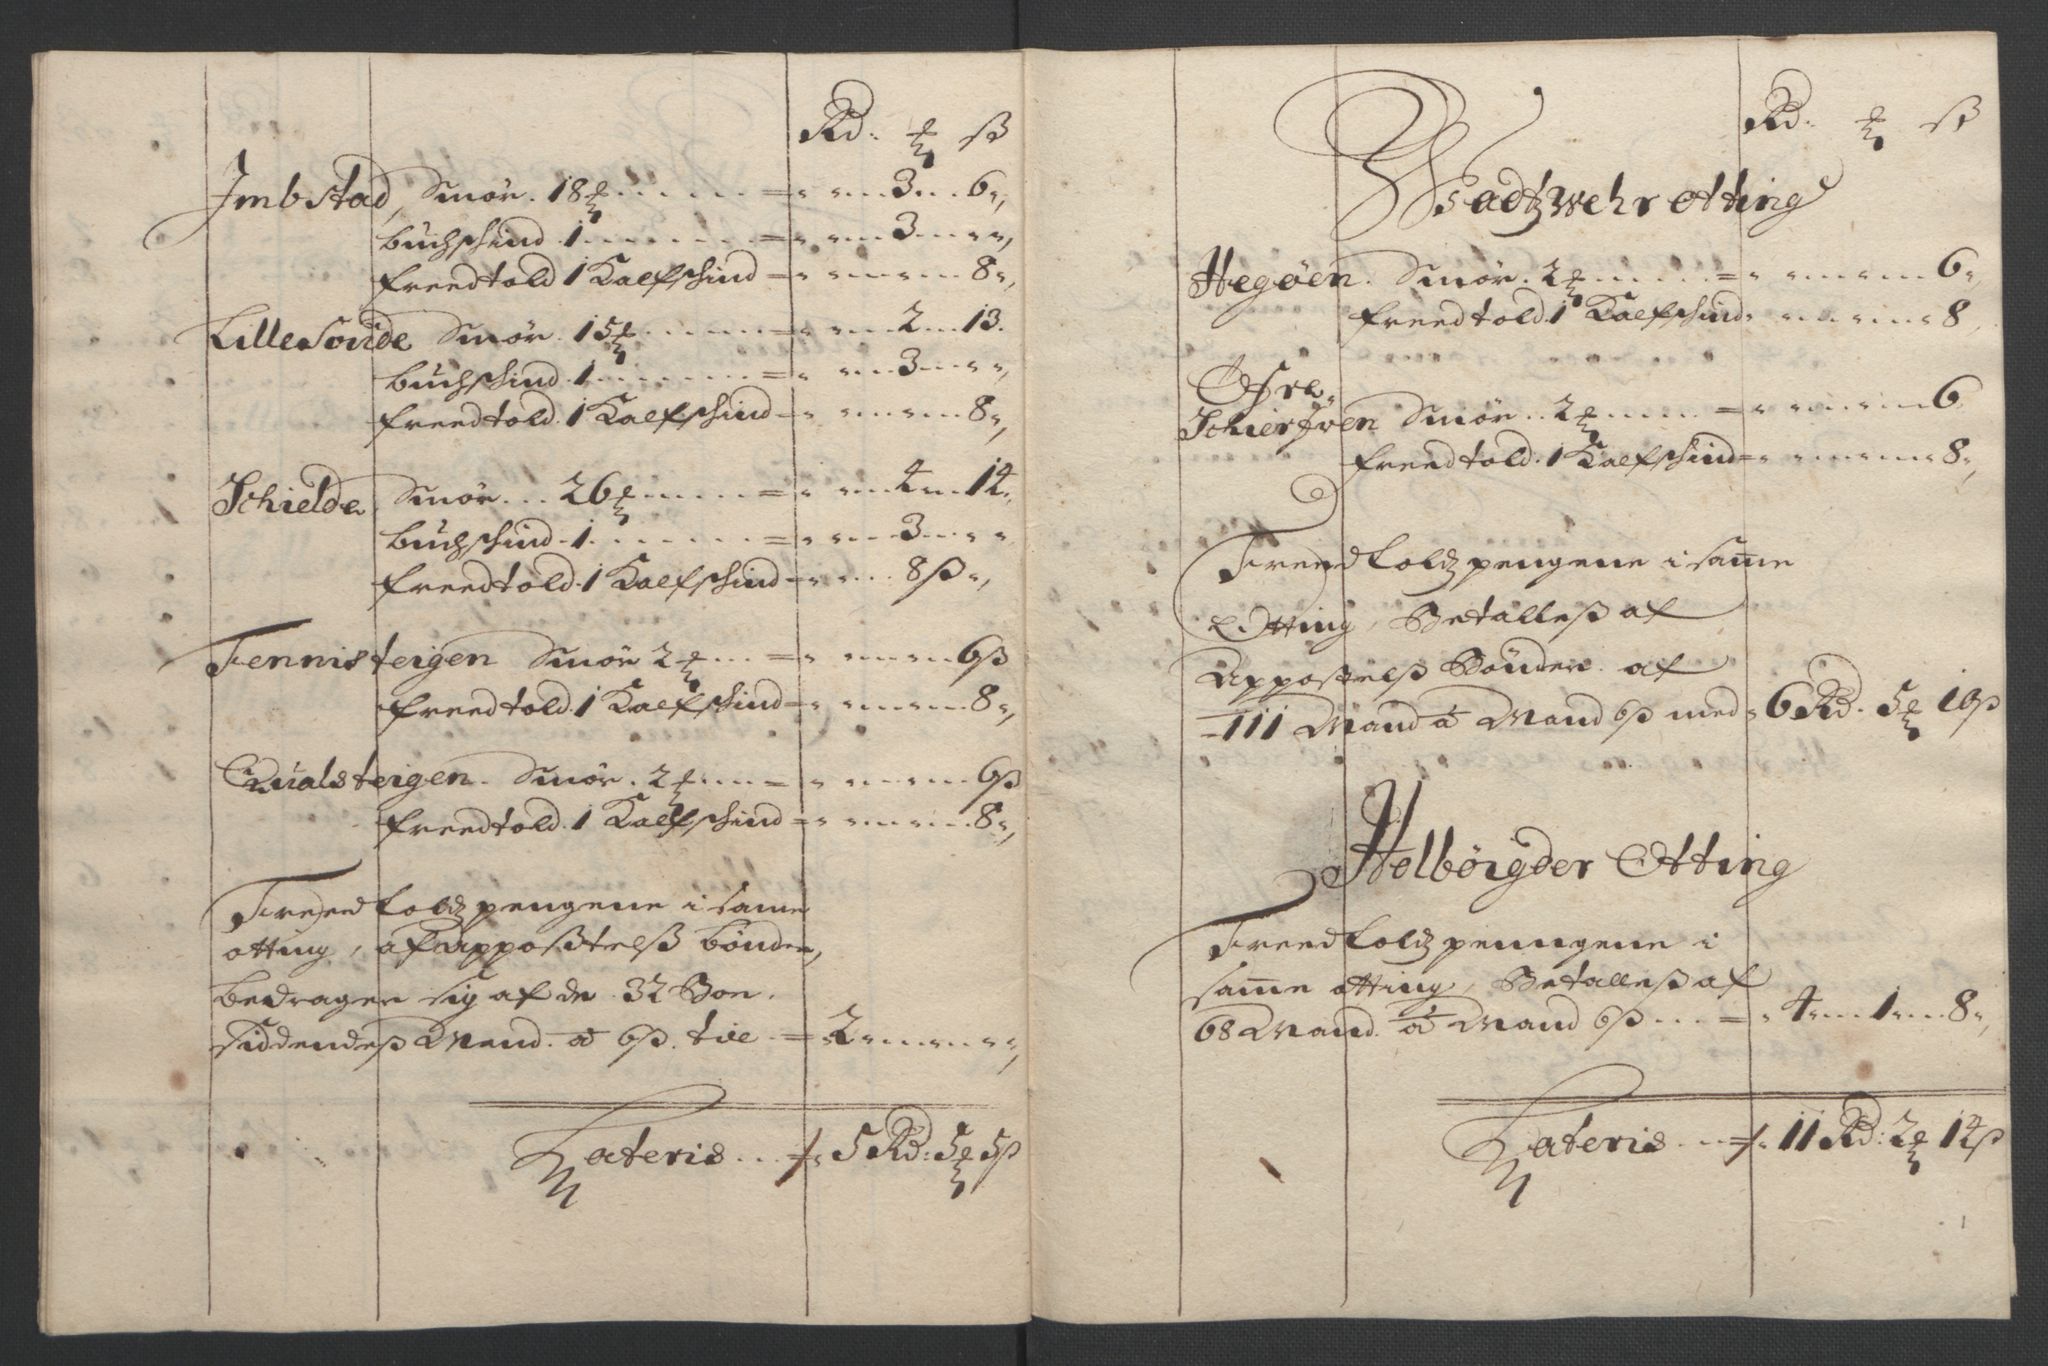 Rd: ℔ ß
Imbstad, Smør. 18 ℔ 3 6
Buchschind 1 3
Freedtold 1 Kalfschind 8
Lillesonde Smør. 15 ℔ 2 13.
Buchschind 1 3
Freedtold. 1 Kalfschind 8
Schielde Smør 26 ℔ 4 14
Buchschind 1 3
Freedtold. 1 Kalfschind 8 ß
Tennisteigen Smør 2 ℔ 6 ß
Freedtold. 1 Kalfschind 8
Qualsteigen. Smør. 2 ℔ 6 ß
Freedtold. 1 Kalfschind 8
Freedtoldz pengene i same
otting, af Appostelß bønder,
bedrager sig af de 32 Boe.
siddendeß Mend. à 6 ß. tie 2
Lateris 5 Rd: 5 ℔ 5 ß
Rd: ℔ ß
Wadtzwehr Otting
Hegøen. Smør. 2 ℔ 6
Freedtold 1 Kalfschind 8
Øfre
Schierfven Smør. 2 ℔ 6
Freedtold. 1 Kalfschind 8
Freedtoldz pengene i same
Otting, Betalleß af
Appostelß Bønder af
111 Mand à Mand 6 ß med 6 Rd. 5 ℔ 10 ß
Holbøigder Otting
Freedtoldz penngene i
same otting, Betalleß af
68 Mand. à Mand 6 ß 4 1 8
Lateris 11 Rd: 2 ℔ 14 ß